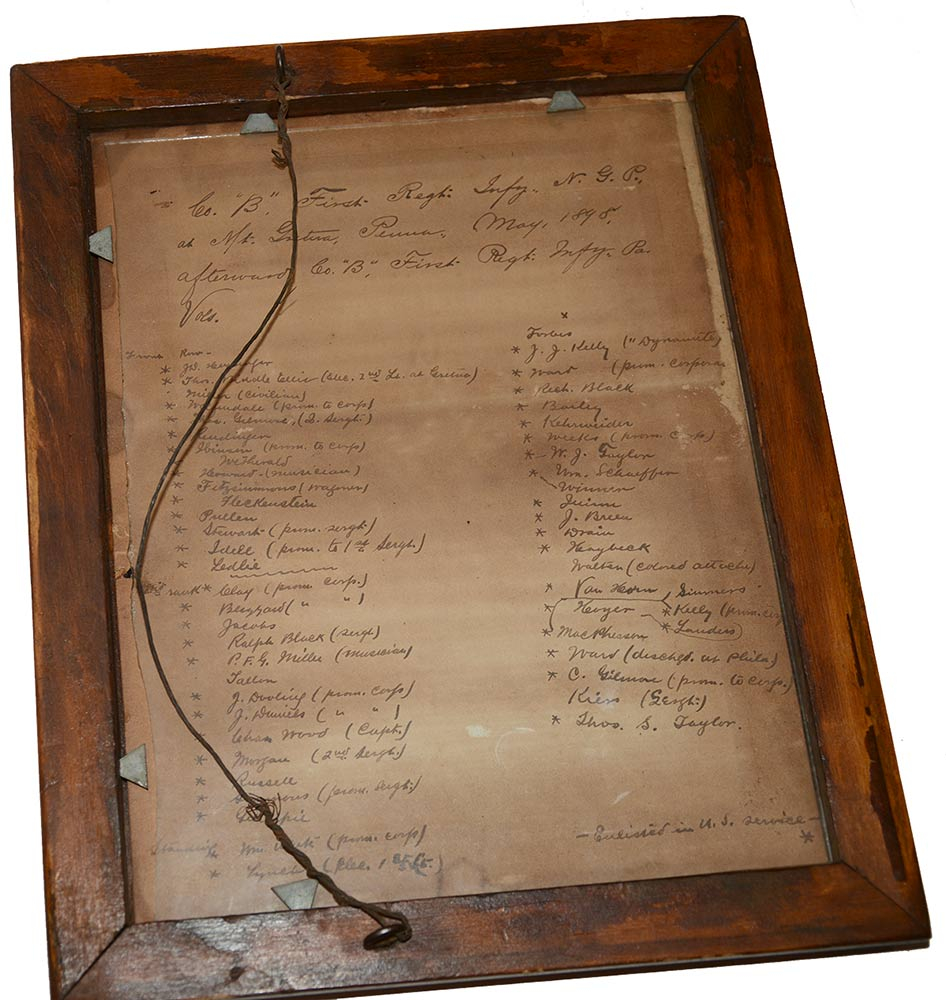 Co. "B", First Regt. Infy. N. G. P.,
at Mt. Gretna, Penna., May, 1898,
afterward Co. "B", First Regt. Infy. Pa.
Vols.
Front Row—
*
* Thos. Ellis (Elec. 2nd Lt. at Gretna)
(civilian)
* (prom. to corp)
* Gilmore, (Q. Sergt.)
*
* (prom. to corp)
Wetherald
* Howard (musician)
* Fitzsimmons (Wagoner)
* Fleckenstein
* Pullen
* Stewart (prom. sergt)
* Idell (prom. to 1st Sergt.)
* Ledlie
2nd rank * Clay (prom. corp.)
* Buzzard (" ")
* Jacobs
* Ralph Black (sergt)
* P. F. G. Miller (musician)
Fallen
* J. Dooling (prom. corp)
* J. Daniels (" ")
* Chas. Wood (Capt.)
* Morgan (2nd Sergt.)
* Russell
* (prom. sergt.)
* Gillespie
Standing * Wm. (prom. corp)
* Lynch (Elec. 1st Lt.)
x
Forbes
* J. J. Kelly ("Dynamite")
* Ward (prom. corporal
* Rich. Black
* Bailey
* Kehrweider
* Weeks (prom. corp)
* W. J. Taylor
* Wm. Schaeffer
Winner
* Quinn
* J. Breen
* Drain
* Haybeck
Walter (colored attache)
* Van Horn, Simmers
* Heyger * Kelly (prom. corp
* MacPherson * Landers
* Ward (dischgd. at Phila)
* C. Gilmore (prom. to corp.)
Kiers (Sergt.)
* Thos. S. Taylor.
— Enlisted in U. S. Service —
*